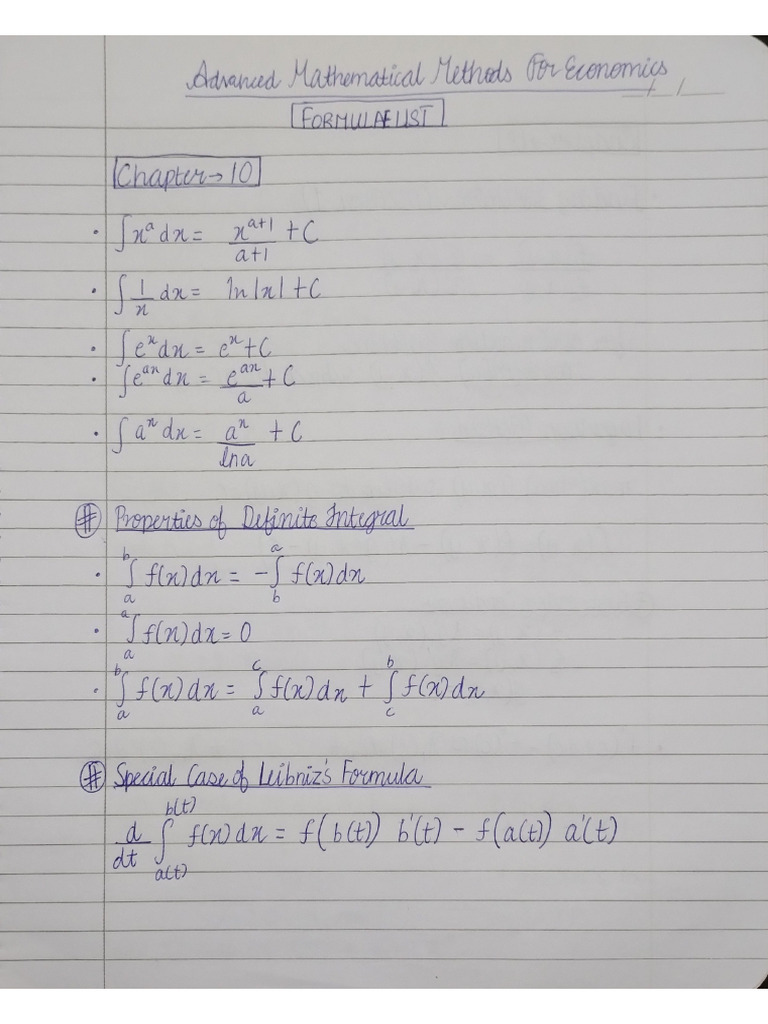 Advanced Mathematical Methods For Economics
FORMULAE LIST
Chapter → 10
• ∫x^a dx = x^(a+1)/(a+1) + C
• ∫1/x dx = ln|x| + C
• ∫e^x dx = e^x + C
• ∫e^(ax) dx = e^(ax)/a + C
• ∫a^x dx = a^x/ln a + C
# Properties of Definite Integral
• ∫_a^b f(x)dx = -∫_b^a f(x)dx
• ∫_a^a f(x)dx = 0
• ∫_a^b f(x)dx = ∫_a^c f(x)dx + ∫_c^b f(x)dx
# Special Case of Leibniz's Formula
d/dt ∫_a(t)^b(t) f(x)dx = f(b(t)) b'(t) - f(a(t)) a'(t)